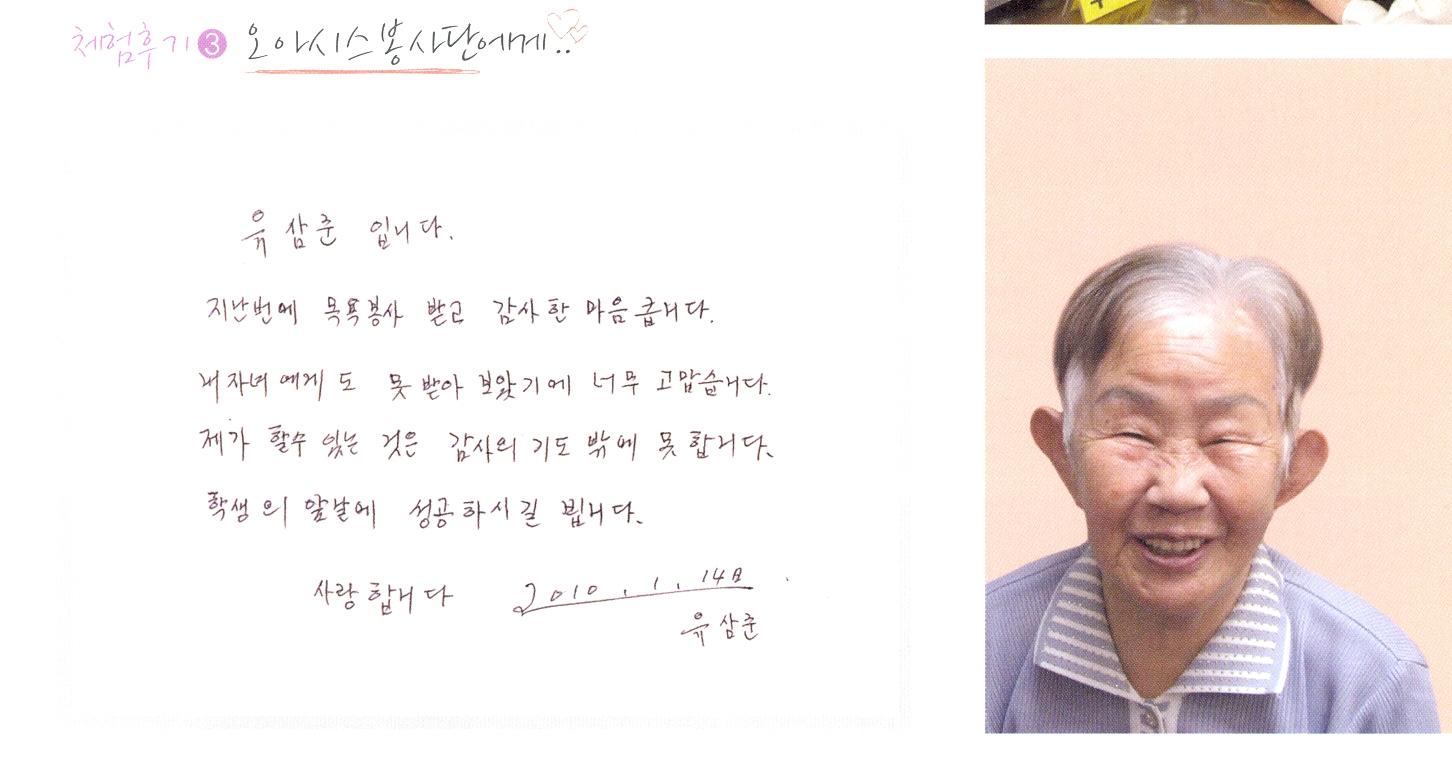 체험후기 3 오아시스봉사단에게..
유삼준 입니다.
지난번에 목욕봉사 받고 감사한 마음 큽니다.
내 자녀에게도 못 받아 보았기에 너무 고맙습니다.
제가 할수 있는 것은 감사의 기도 밖에 못 합니다.
학생의 앞날에 성공하시길 빕니다.
사랑합니다 2010. 1. 14日
유삼준